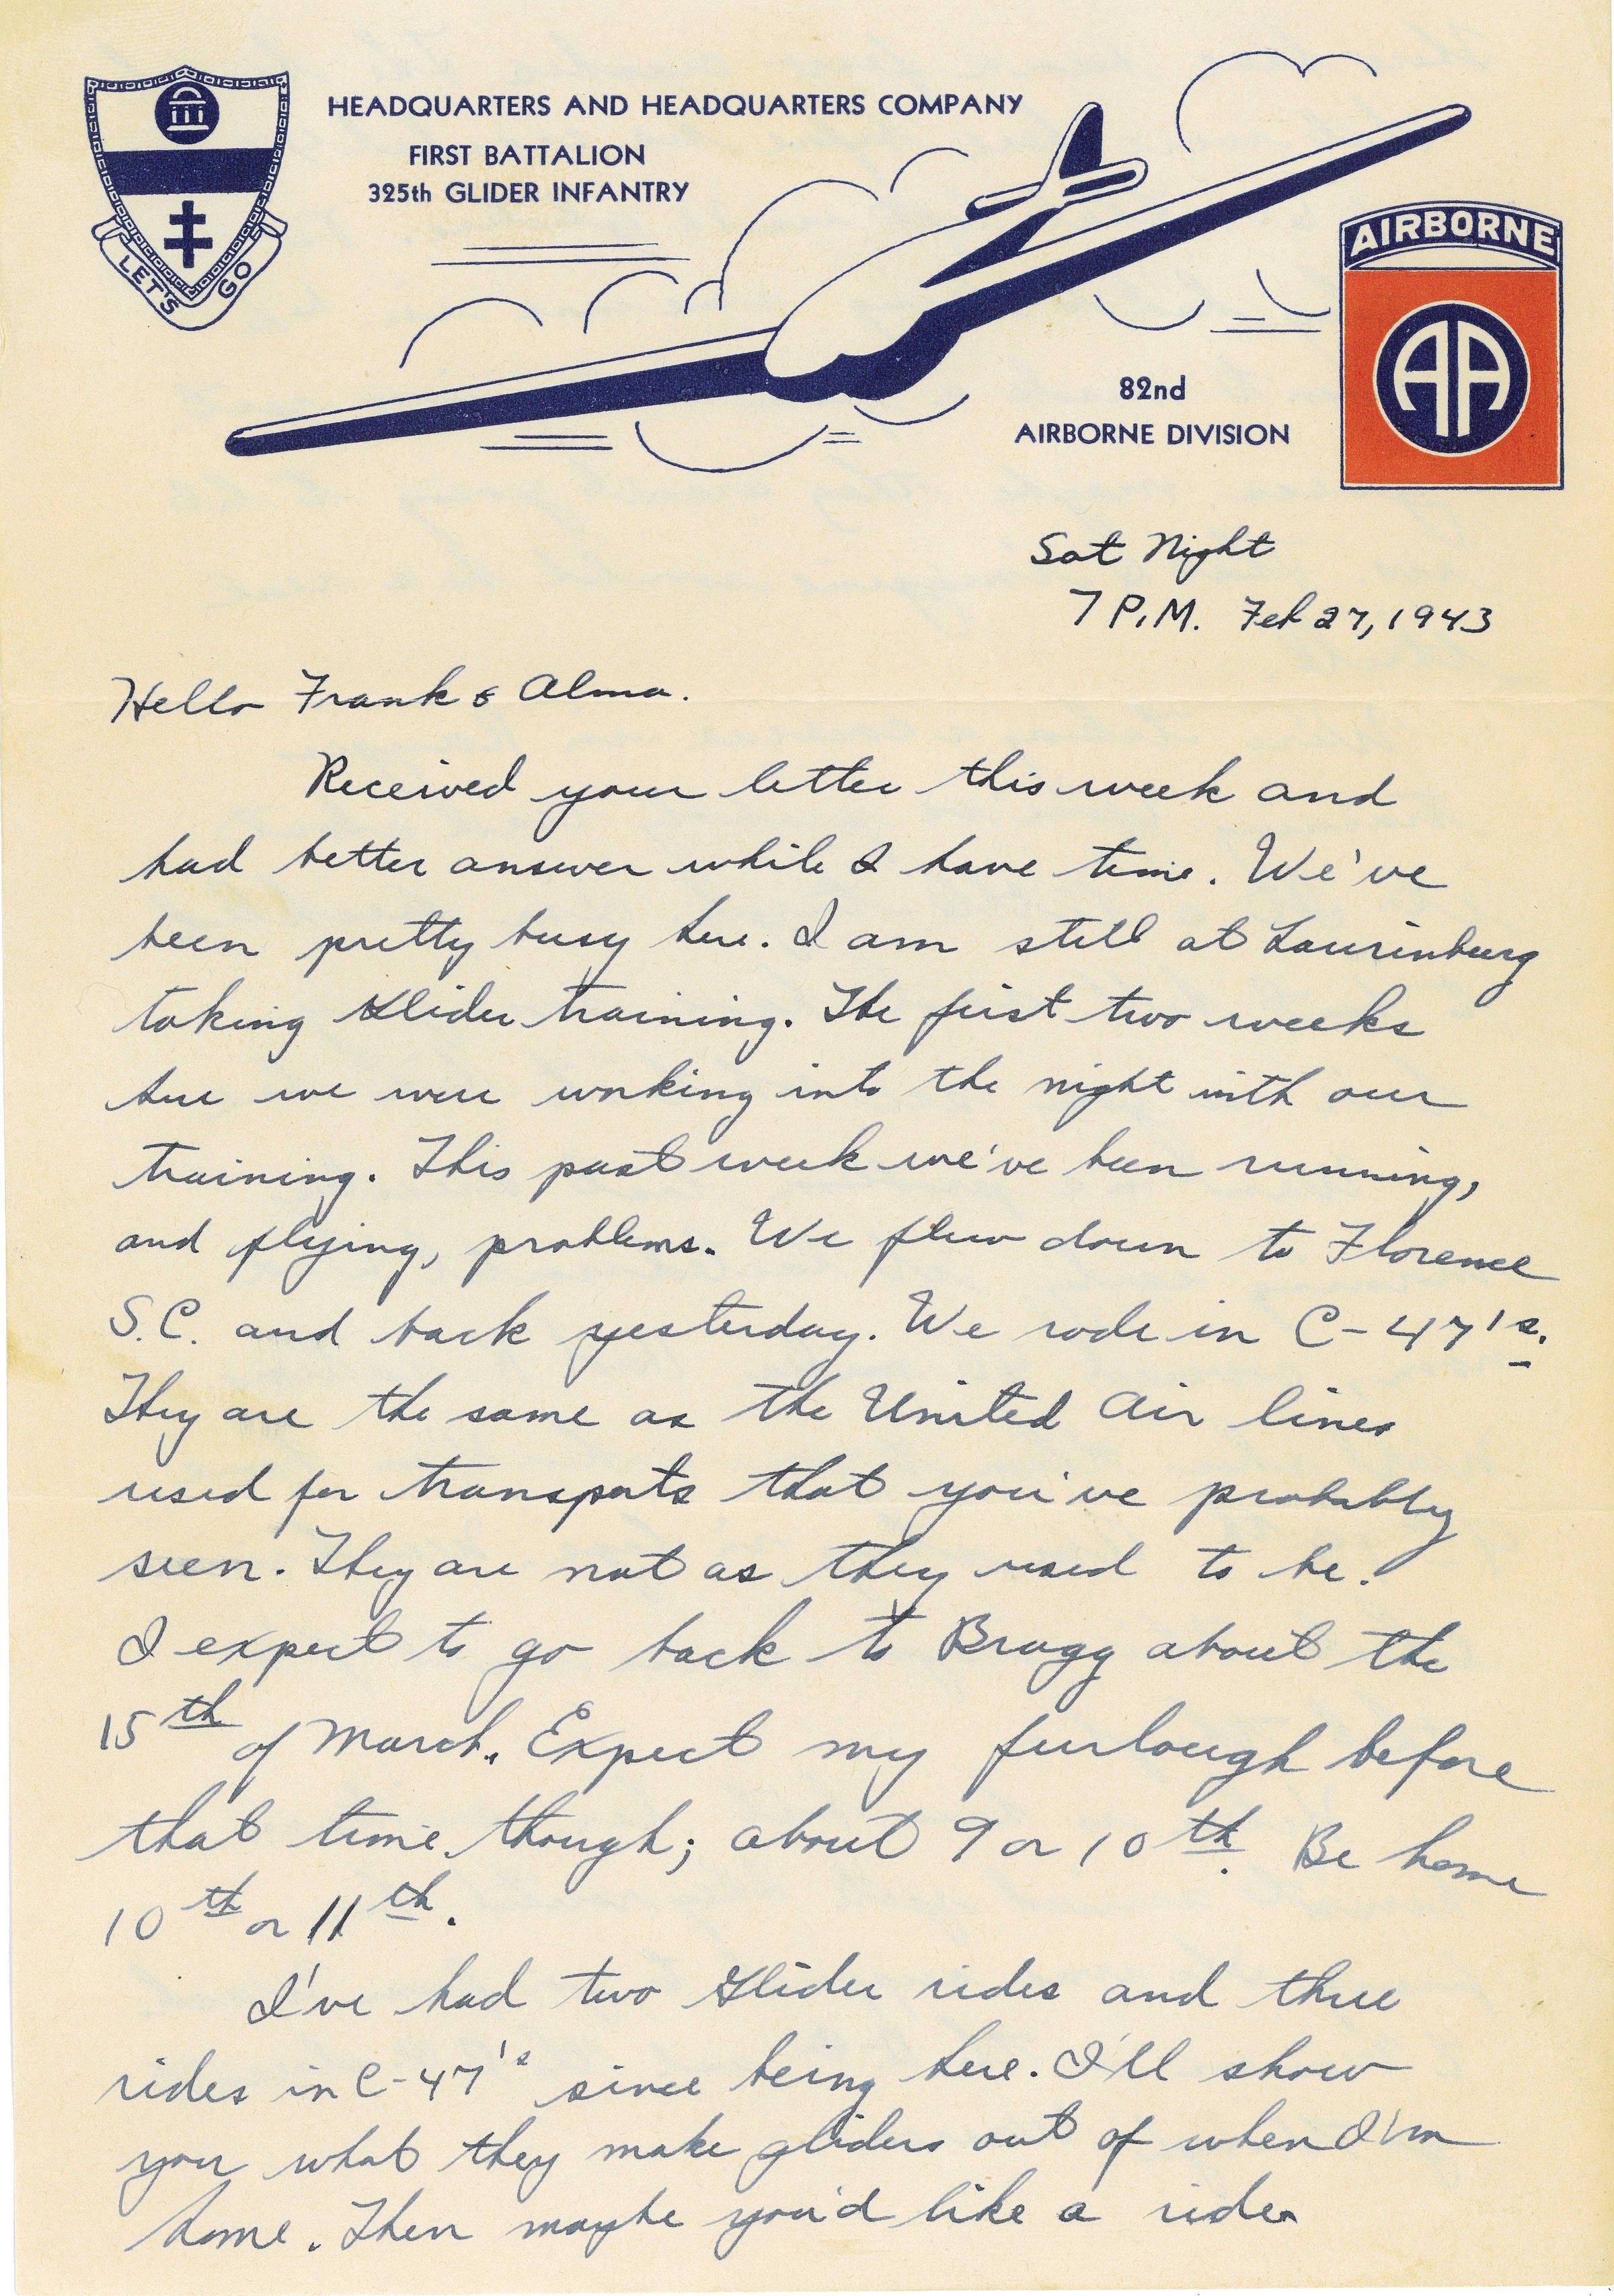 HEADQUARTERS AND HEADQUARTERS COMPANY
FIRST BATTALION
325th GLIDER INFANTRY
LET'S GO
AIRBORNE
AA
82nd
AIRBORNE DIVISION
Sat Night
7 P.M. Feb 27, 1943
Hello Frank & Alma.
Received your letter this week and
had better answer while I have time. We've
been pretty busy here. I am still at Laurinburg
taking Glider training. The first two weeks
here we were working into the night with our
training. This past week we've been running,
and flying, problems. We flew down to Florence
S.C. and back yesterday. We rode in C-47's.
They are the same as the United Air lines
used for transports that you've probably
seen. They are not as they used to be.
I expect to go back to Bragg about the
15th of March. Expect my furlough before
that time though; about 9 or 10th. Be home
10th or 11th.
I've had two Glider rides and three
rides in C-47's since being here. I'll show
you what they make gliders out of when I'm
home. Then maybe you'd like a ride.